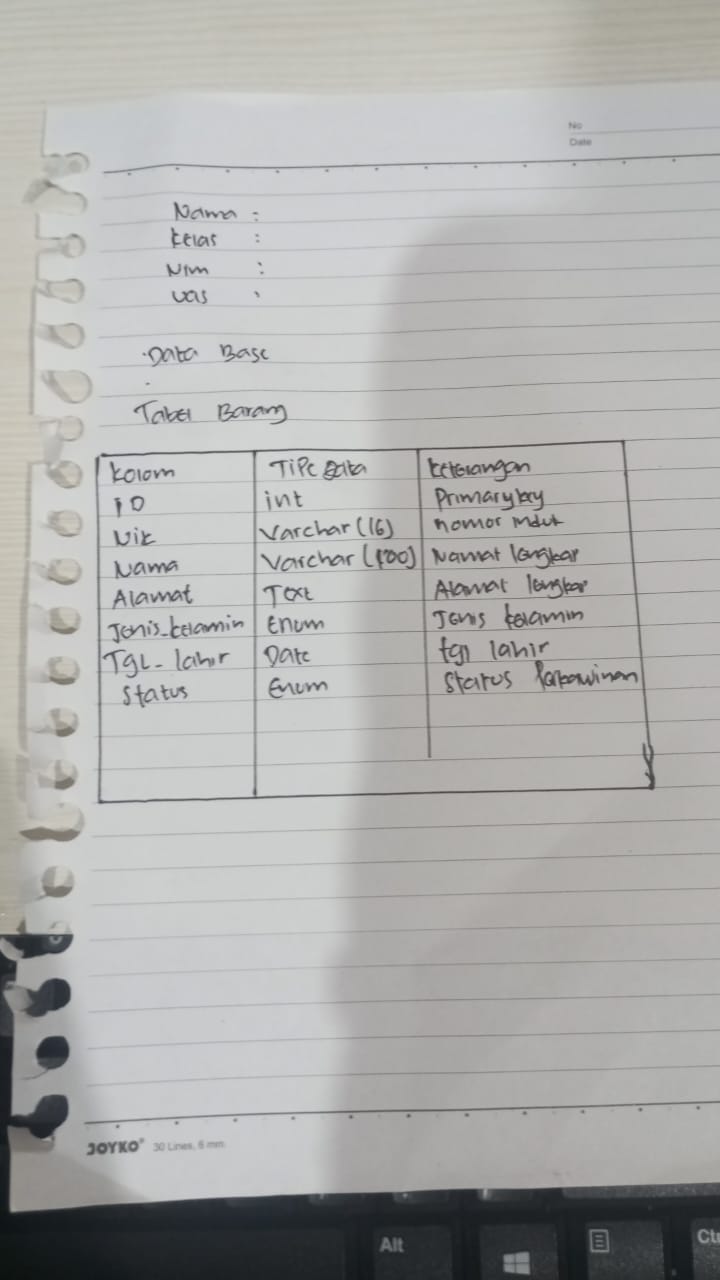 No
Date
Nama :
Kelas :
Nim :
uas :
Data Base
Tabel Barang
Kolom Tipe data Keterangan
ID int Primary key
Nik Varchar (16) nomor induk
Nama Varchar (100) Namat lengkap
Alamat Text Alamat lengkap
Jenis_kelamin Enum Jenis kelamin
Tgl_lahir Date tgl lahir
Status Enum Status Perkawinan
JOYKO 30 Lines, 6 mm
Alt
Ctr